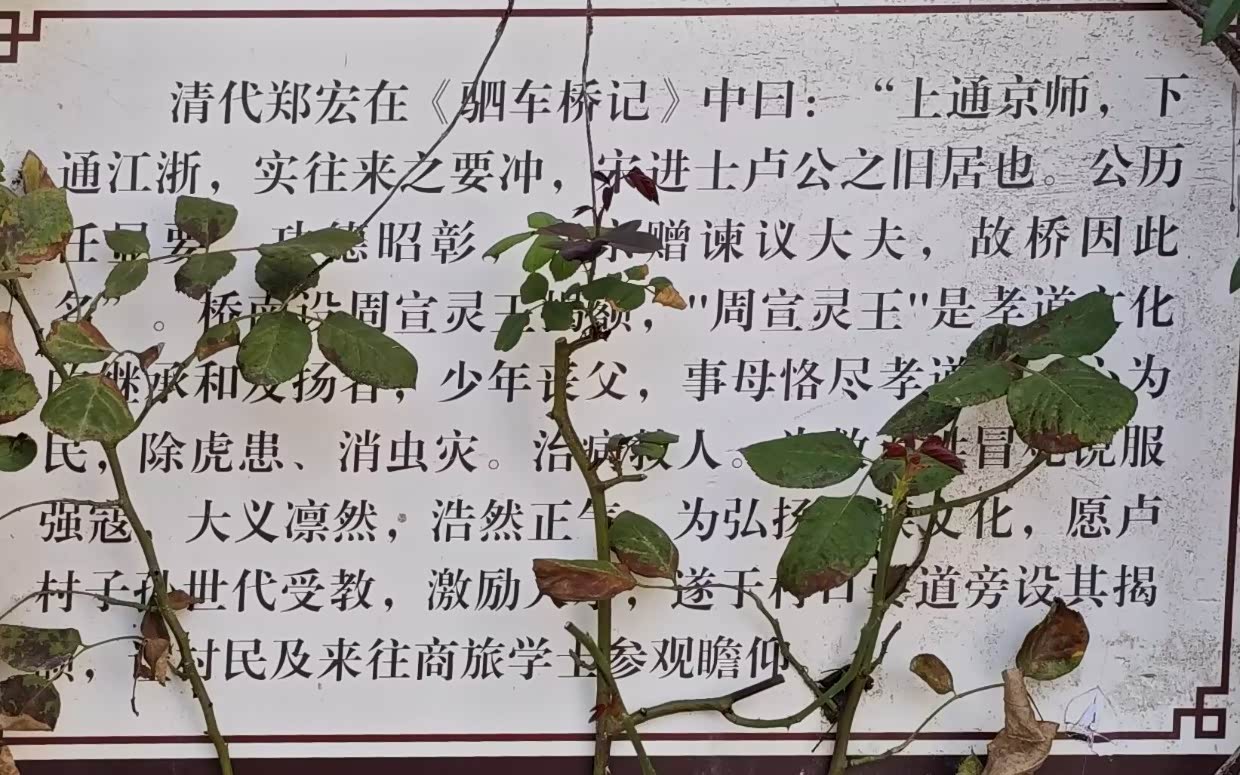 清代郑宏在《驷车桥记》中曰：“上通京师，下
通江浙，实往来之要冲，宋进士卢公之旧居也。公历
任显要，功德昭彰，赠谏议大夫，故桥因此
名”。桥南设周宣灵王揭额，"周宣灵王"是孝道文化
的继承和发扬者，少年丧父，事母恪尽孝道，为
民，除虎患、消虫灾。治病救人。为救百姓冒死说服
强寇，大义凛然，浩然正气，为弘扬文化，愿卢
村子孙世代受教，激励，遂于村口要道旁设其揭
额，让村民及来往商旅学士参观瞻仰